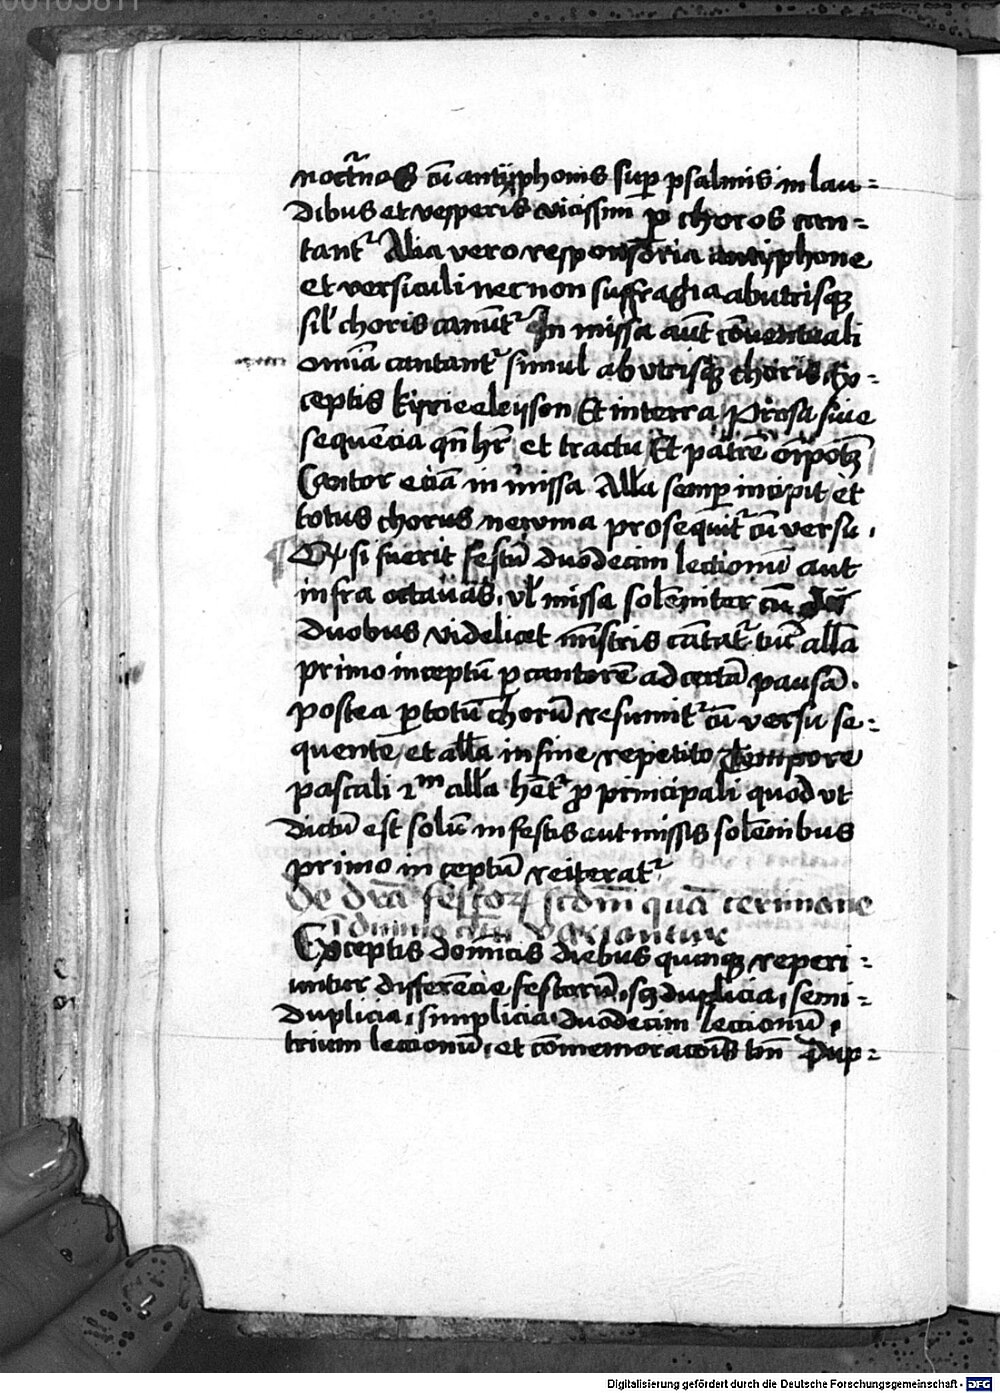 noctũos cũ antyphonis sup psalmis in lau=
dibus et vesperis vicissim p choros can=
tant᷑ Alia vero responsoria antyphone
et versiculi necnon suffragia ab utrisqꝫ
sil' choris canũt᷑ In missa aũt cõuentuali
om̃ia cantant᷑ simul ab vtrisqꝫ choris Ex=
ceptis kyrieeleyson Et in terra Prosa siue
sequẽcia qñ hr̃ et tractu Et patrẽ oĩpotẽ
Cantor eciã in missa All'a semp incipit et
totus chorus newma prosequit᷑ cũ versu.
Et si fuerit festũ duodecim lectionũ aut
infra octauas, vl' missa solẽniter cũ
duobus videlicet mĩstris cãtat᷑ tũc all'a
primo inceptũ p cantorẽ ad certã pausã.
postea p totũ chorũ resumit᷑ cũ versu se=
quente, et all'a in fine repetito Tempore
pascali 2m all'a hẽt᷑ p principali quod vt
dictũ est solũ in festis aut missis solẽnibus
primo in ceptũ reiterat᷑
De dr̃a festoꝝ scdm̃ quã cerimonie
diuino variantur
Exceptis domĩcis diebus quinqꝫ reperi=
untur differẽcie festorũ, sꝫ duplicia, semi=
duplicia, simplicia, duodecim lectionũ,
trium lectionũ, et cõmemoracõis tm̃ Dup=
Digitalisierung gefördert durch die Deutsche Forschungsgemeinschaft - DFG